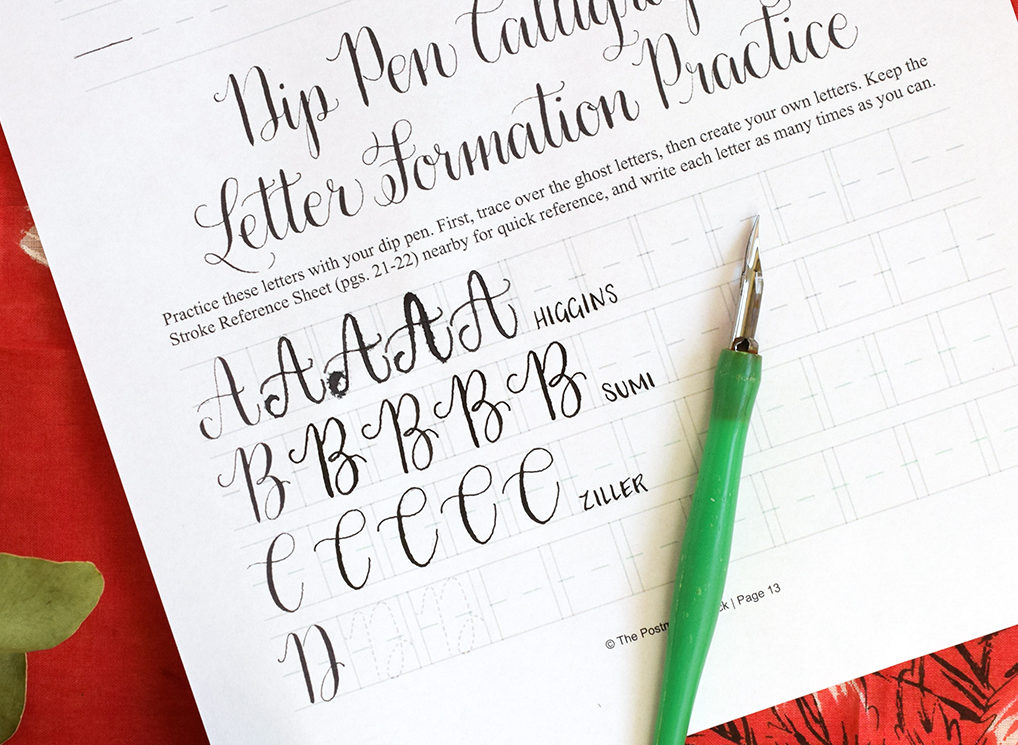 Dip Pen
Letter Formation Practice
Practice these letters with your dip pen. First, trace over the ghost letters, then create your own letters. Keep the
Stroke Reference Sheet (pgs. 21-22) nearby for quick reference, and write each letter as many times as you can.
A A A A A HIGGINS
B B B B B SUMI
C C C C C ZILLER
D
© The | Page 13